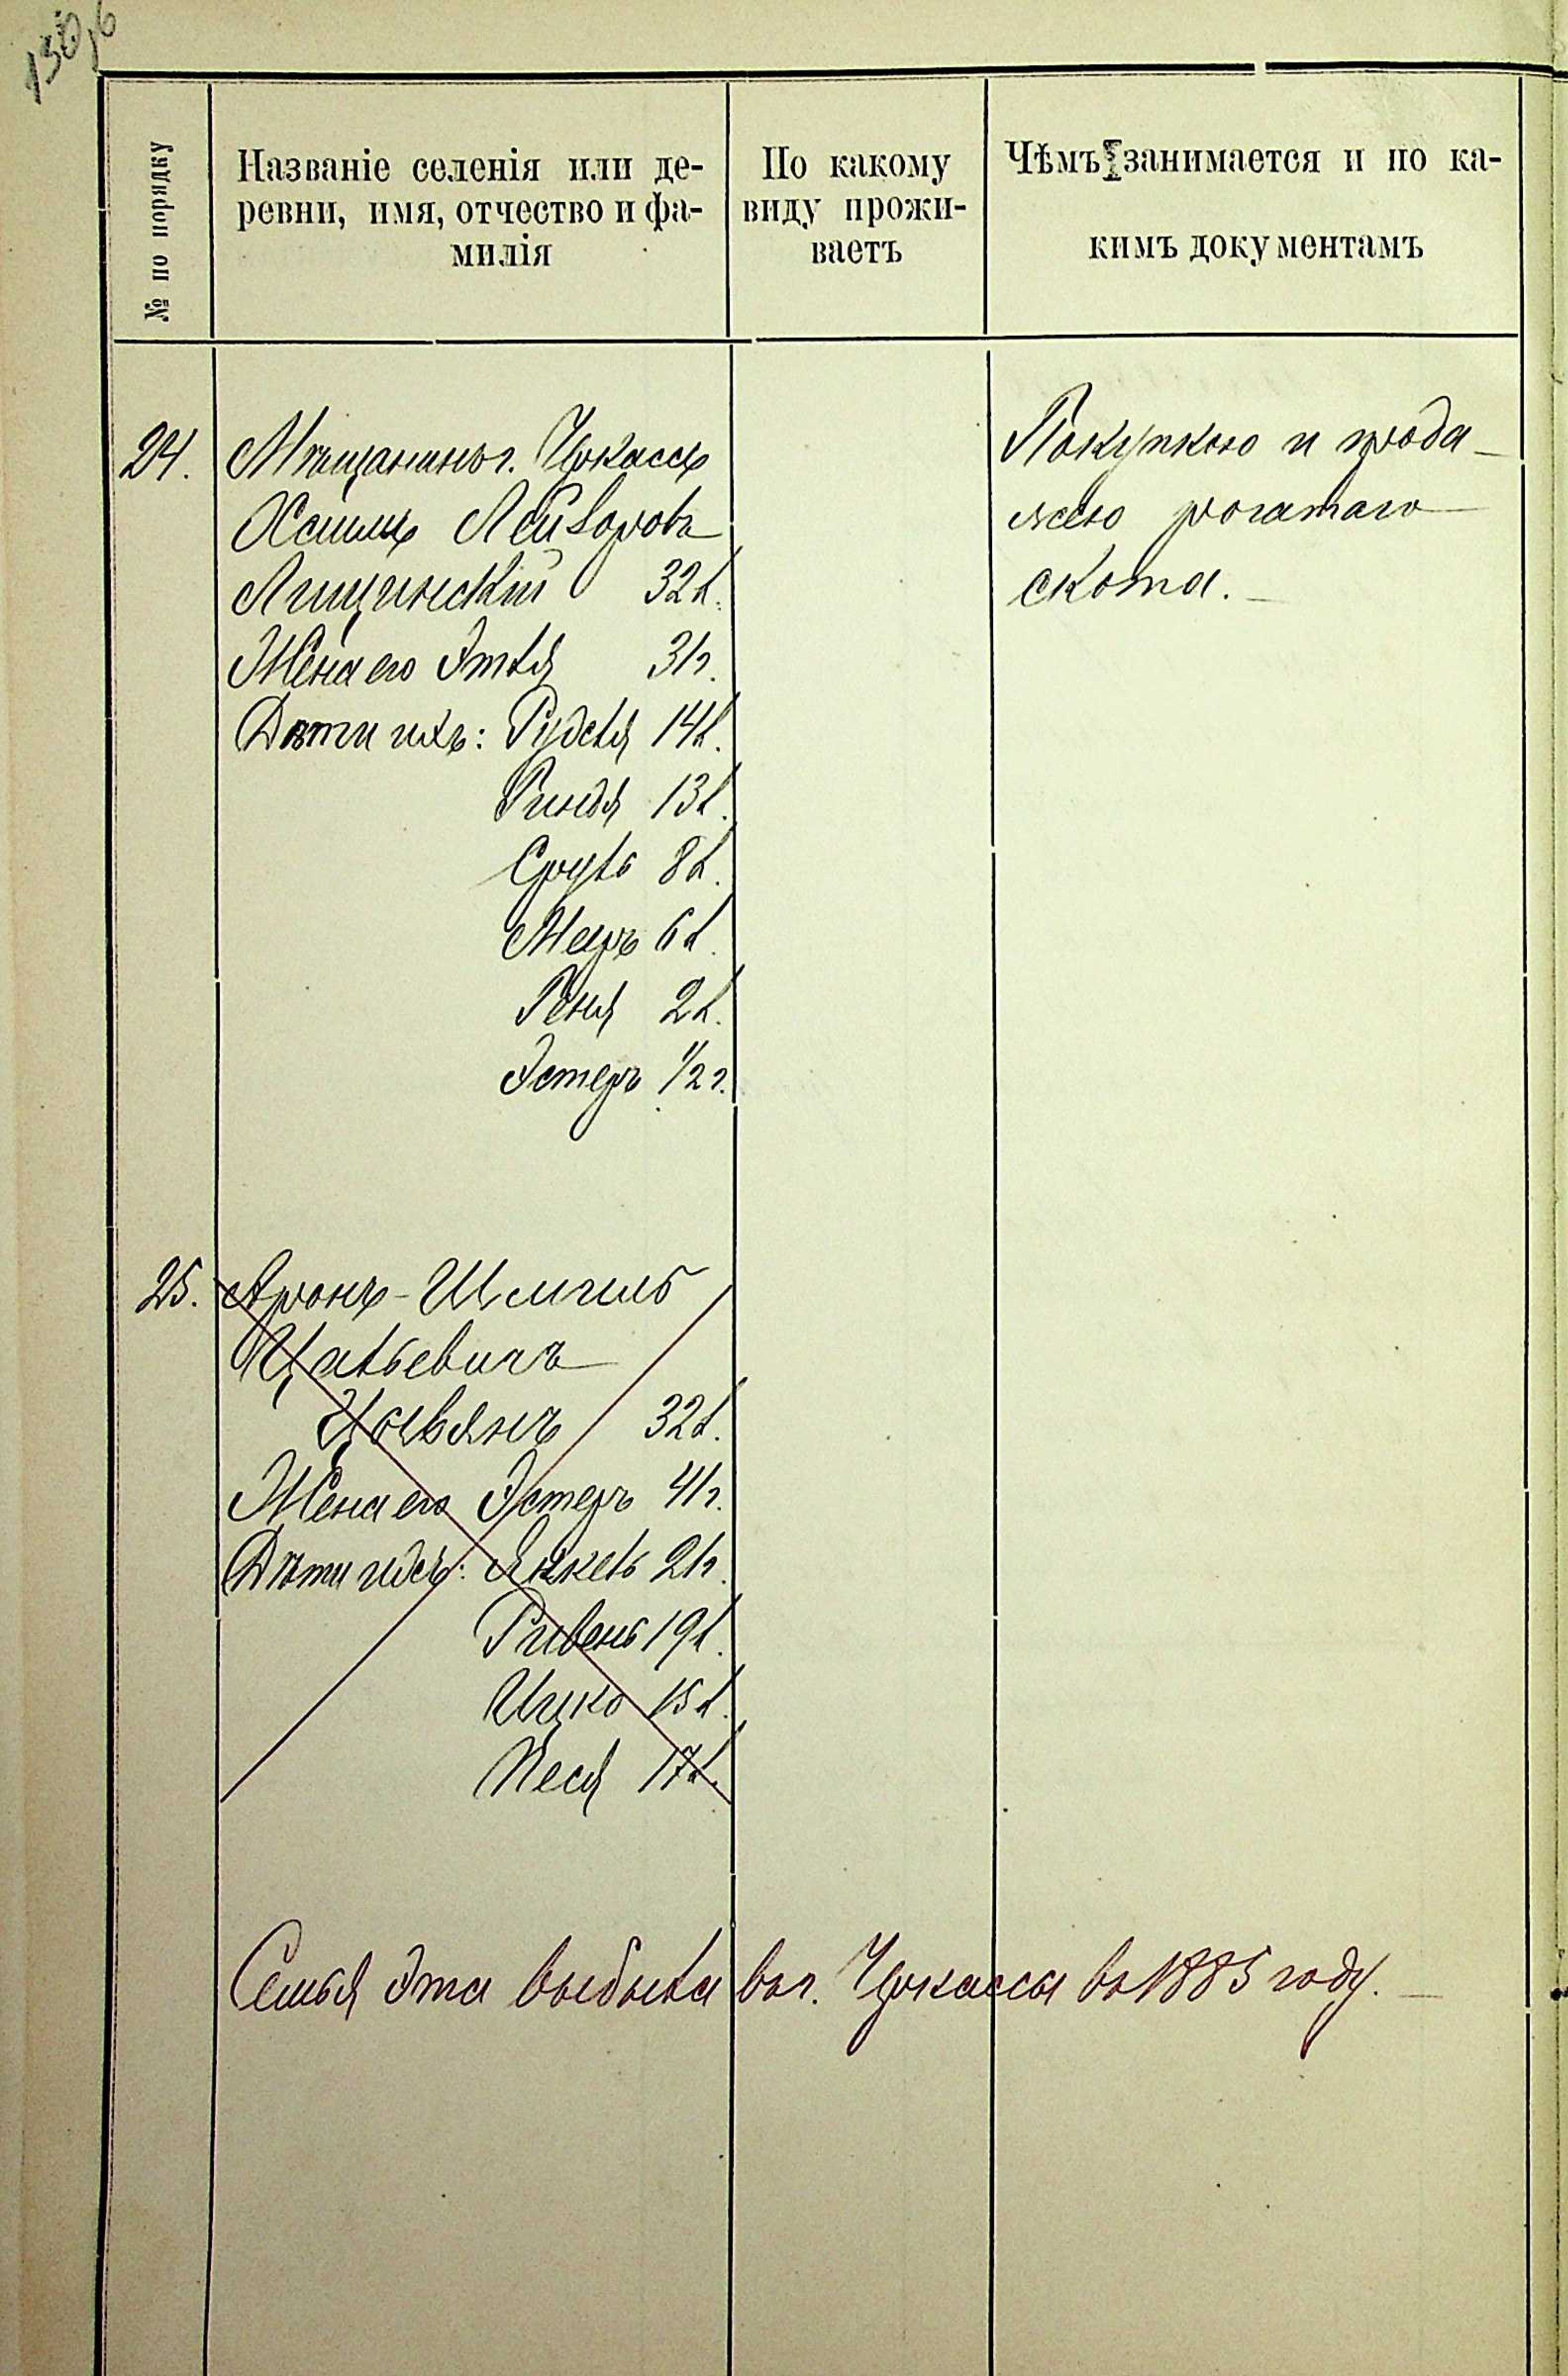 130,б
№ по порядку
Названіе селенія или де-
ревни, имя, отчество и фа-
милія
По какому
виду прожи-
ваетъ
Чѣмъ занимается и по ка-
кимъ документамъ
24.
Мѣщанинъ г. Черкассъ
Хаимъ Лейзоровъ
Лищинскій 32 л.
Жена его Этля 31 г.
Дѣти ихъ: Рудля 14 л.
Риндя 13 л.
Сруль 8 л.
Мееръ 6 л.
Геня 2 л.
Эстеръ 1/2 г.
Покупкою и прода-
жею рогатаго
скота.
25.
Аронъ-Шмиль
Цалевичъ
32 л.
Жена его Эстеръ 41 г.
Дѣти ихъ: Янкель 21 г.
Рувенъ 19 л.
Ицко 15 л.
Песя 17 л.
Семья эта выбыла въ г. Черкассы въ 1885 году.